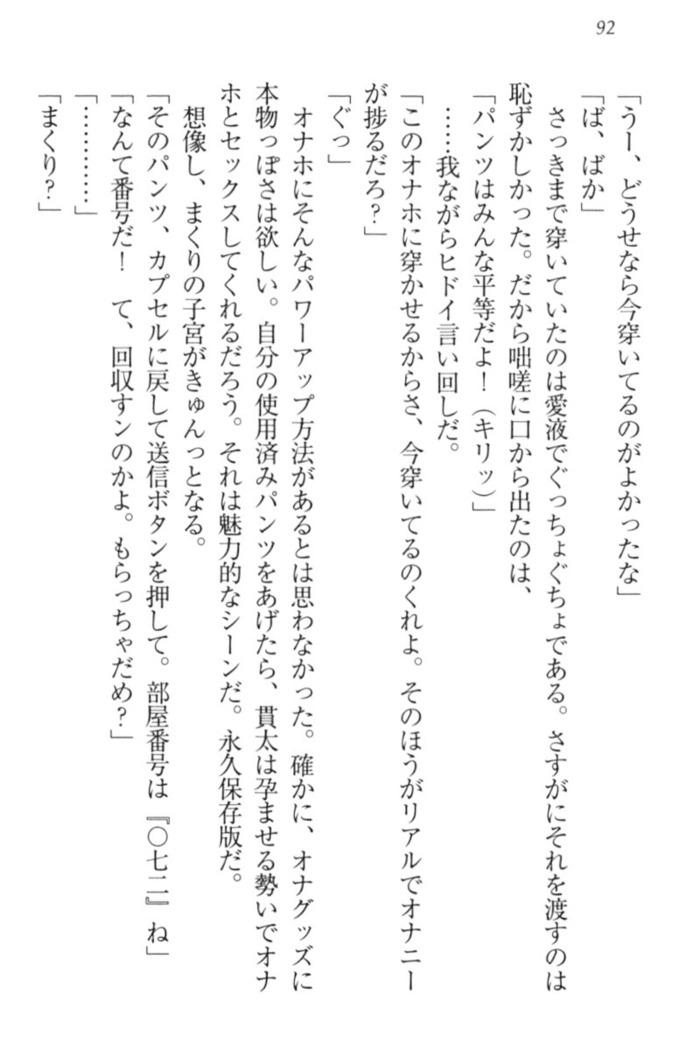 92
「うー、どうせなら今穿いてるのがよかったな」
「ば、ばか」
さっきまで穿いていたのは愛液でぐっちょぐちょである。さすがにそれを渡すのは
恥ずかしかった。だから咄嗟に口から出たのは、
「パンツはみんな平等だよ！（キリッ）」
……我ながらヒドイ言い回しだ。
「このオナホに穿かせるからさ、今穿いてるのくれよ。そのほうがリアルでオナニー
が捗るだろ？」
「ぐっ」
オナホにそんなパワーアップ方法があるとは思わなかった。確かに、オナグッズに
本物っぽさは欲しい。自分の使用済みパンツをあげたら、貫太は孕ませる勢いでオナ
ホとセックスしてくれるだろう。それは魅力的なシーンだ。永久保存版だ。
想像し、まくりの子宮がきゅんっとなる。
「そのパンツ、カプセルに戻して送信ボタンを押して。部屋番号は『〇七二』ね」
「なんて番号だ！　て、回収すンのかよ。もらっちゃだめ？」
「…………」
「まくり？」